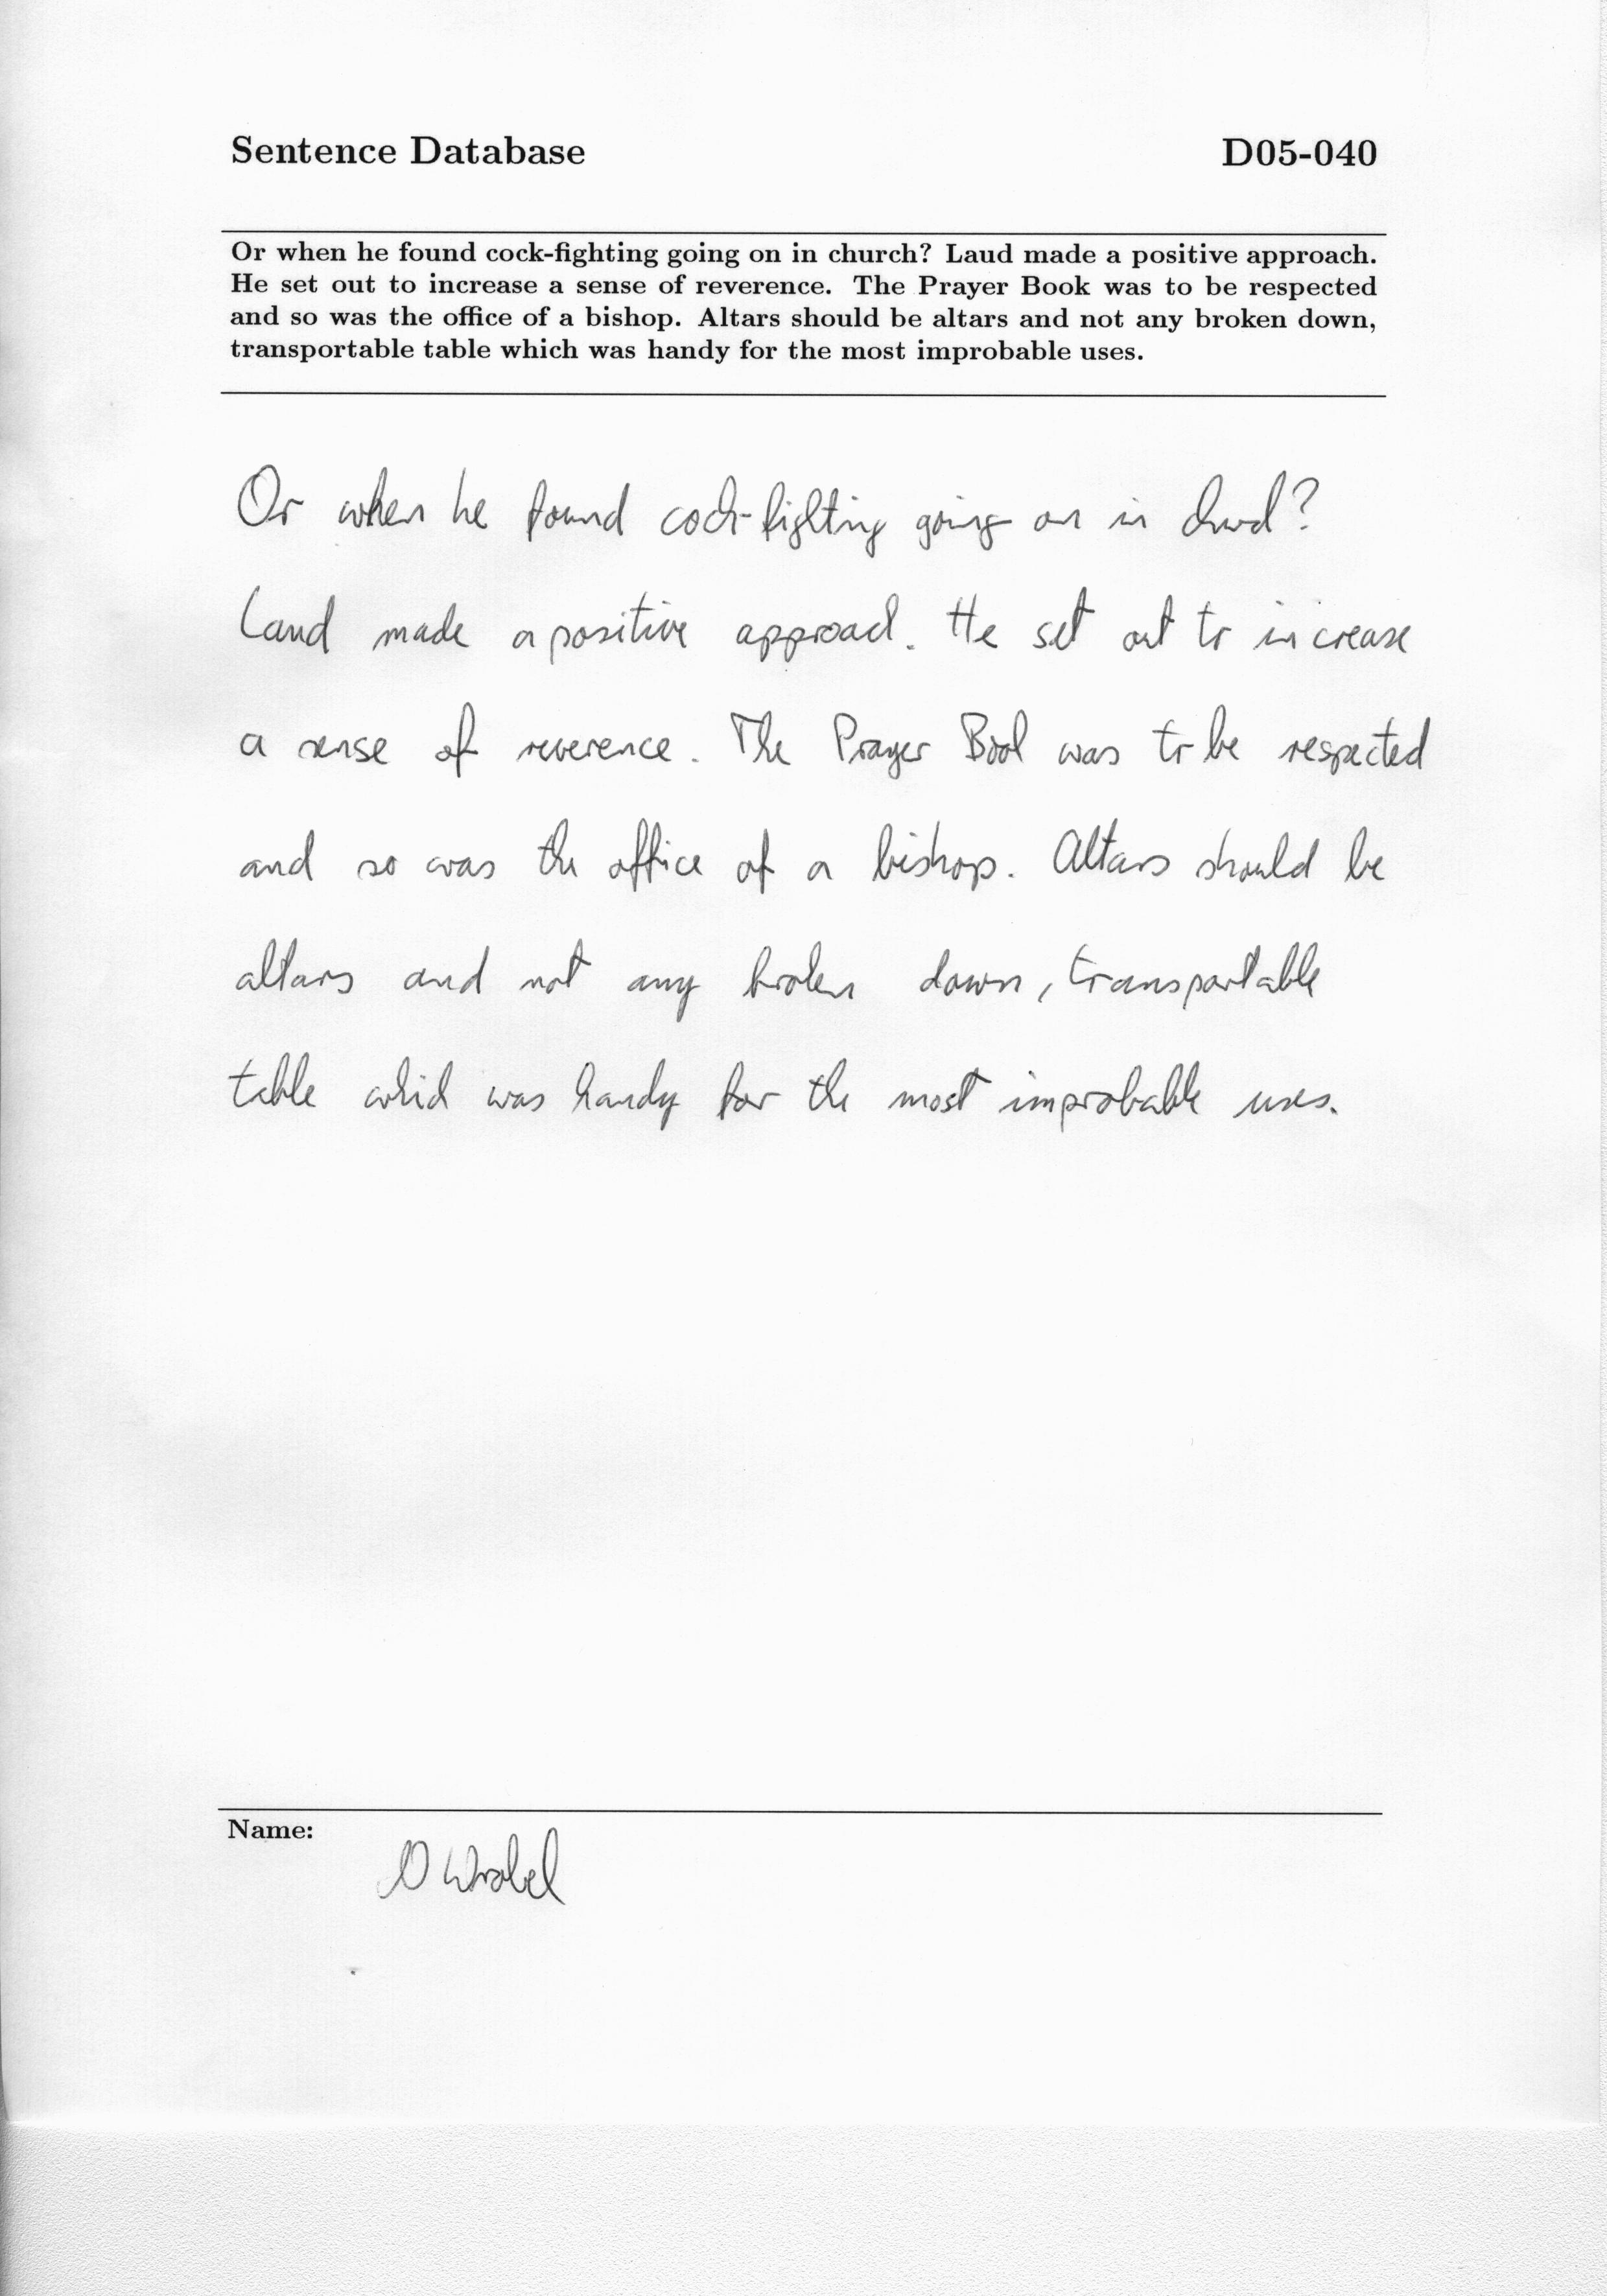 Sentence Database D05-040
Or when he found cock-fighting going on in church? Laud made a positive approach.
He set out to increase a sense of reverence. The Prayer Book was to be respected
and so was the office of a bishop. Altars should be altars and not any broken down,
transportable table which was handy for the most improbable uses.
Or when he found cock-fighting going on in church?
Laud made a positive approach. He set out to increase
a sense of reverence. The Prayer Book was to be respected
and so was the office of a bishop. Altars should be
altars and not any broken down, transportable
table which was handy for the most improbable uses.
Name:
D Wrobel